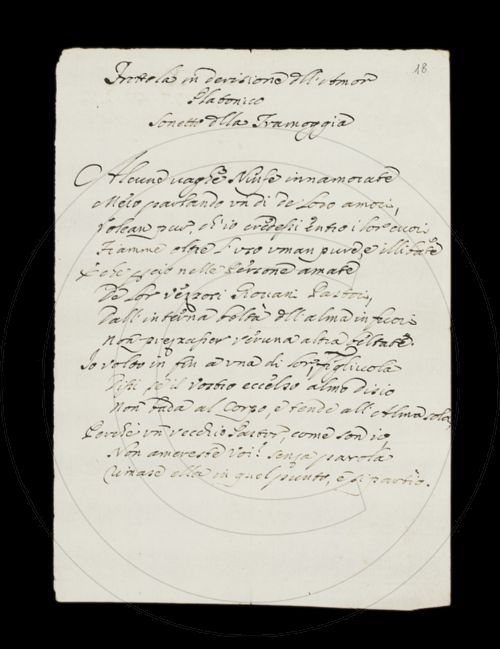 18
Frottola in derisione dell'Amor
Platonico
Sonetto della Tramoggia
Alcune vaghe Ninfe innamorate
Meco parlando un dì de' loro amori,
Volean pur, ch'io credessi entro i lor cuori
Fiamme oltre l'uso uman pure, e illibate
E che nelle Persone amate
De lor vezzosi Giovani Pastori,
Dall'interna beltà dell'alma in fuori
Non veruna altra beltate.
Io volto in fin a una di lor, figliuola
Dissi se il vostro eccelso almo disio
Non bada al Corpo, e tende all'Alma sola,
Perché un vecchio Pastor, come son io,
Non amereste Voi? senza parola
Rimase ella in quel punto, e si partio.